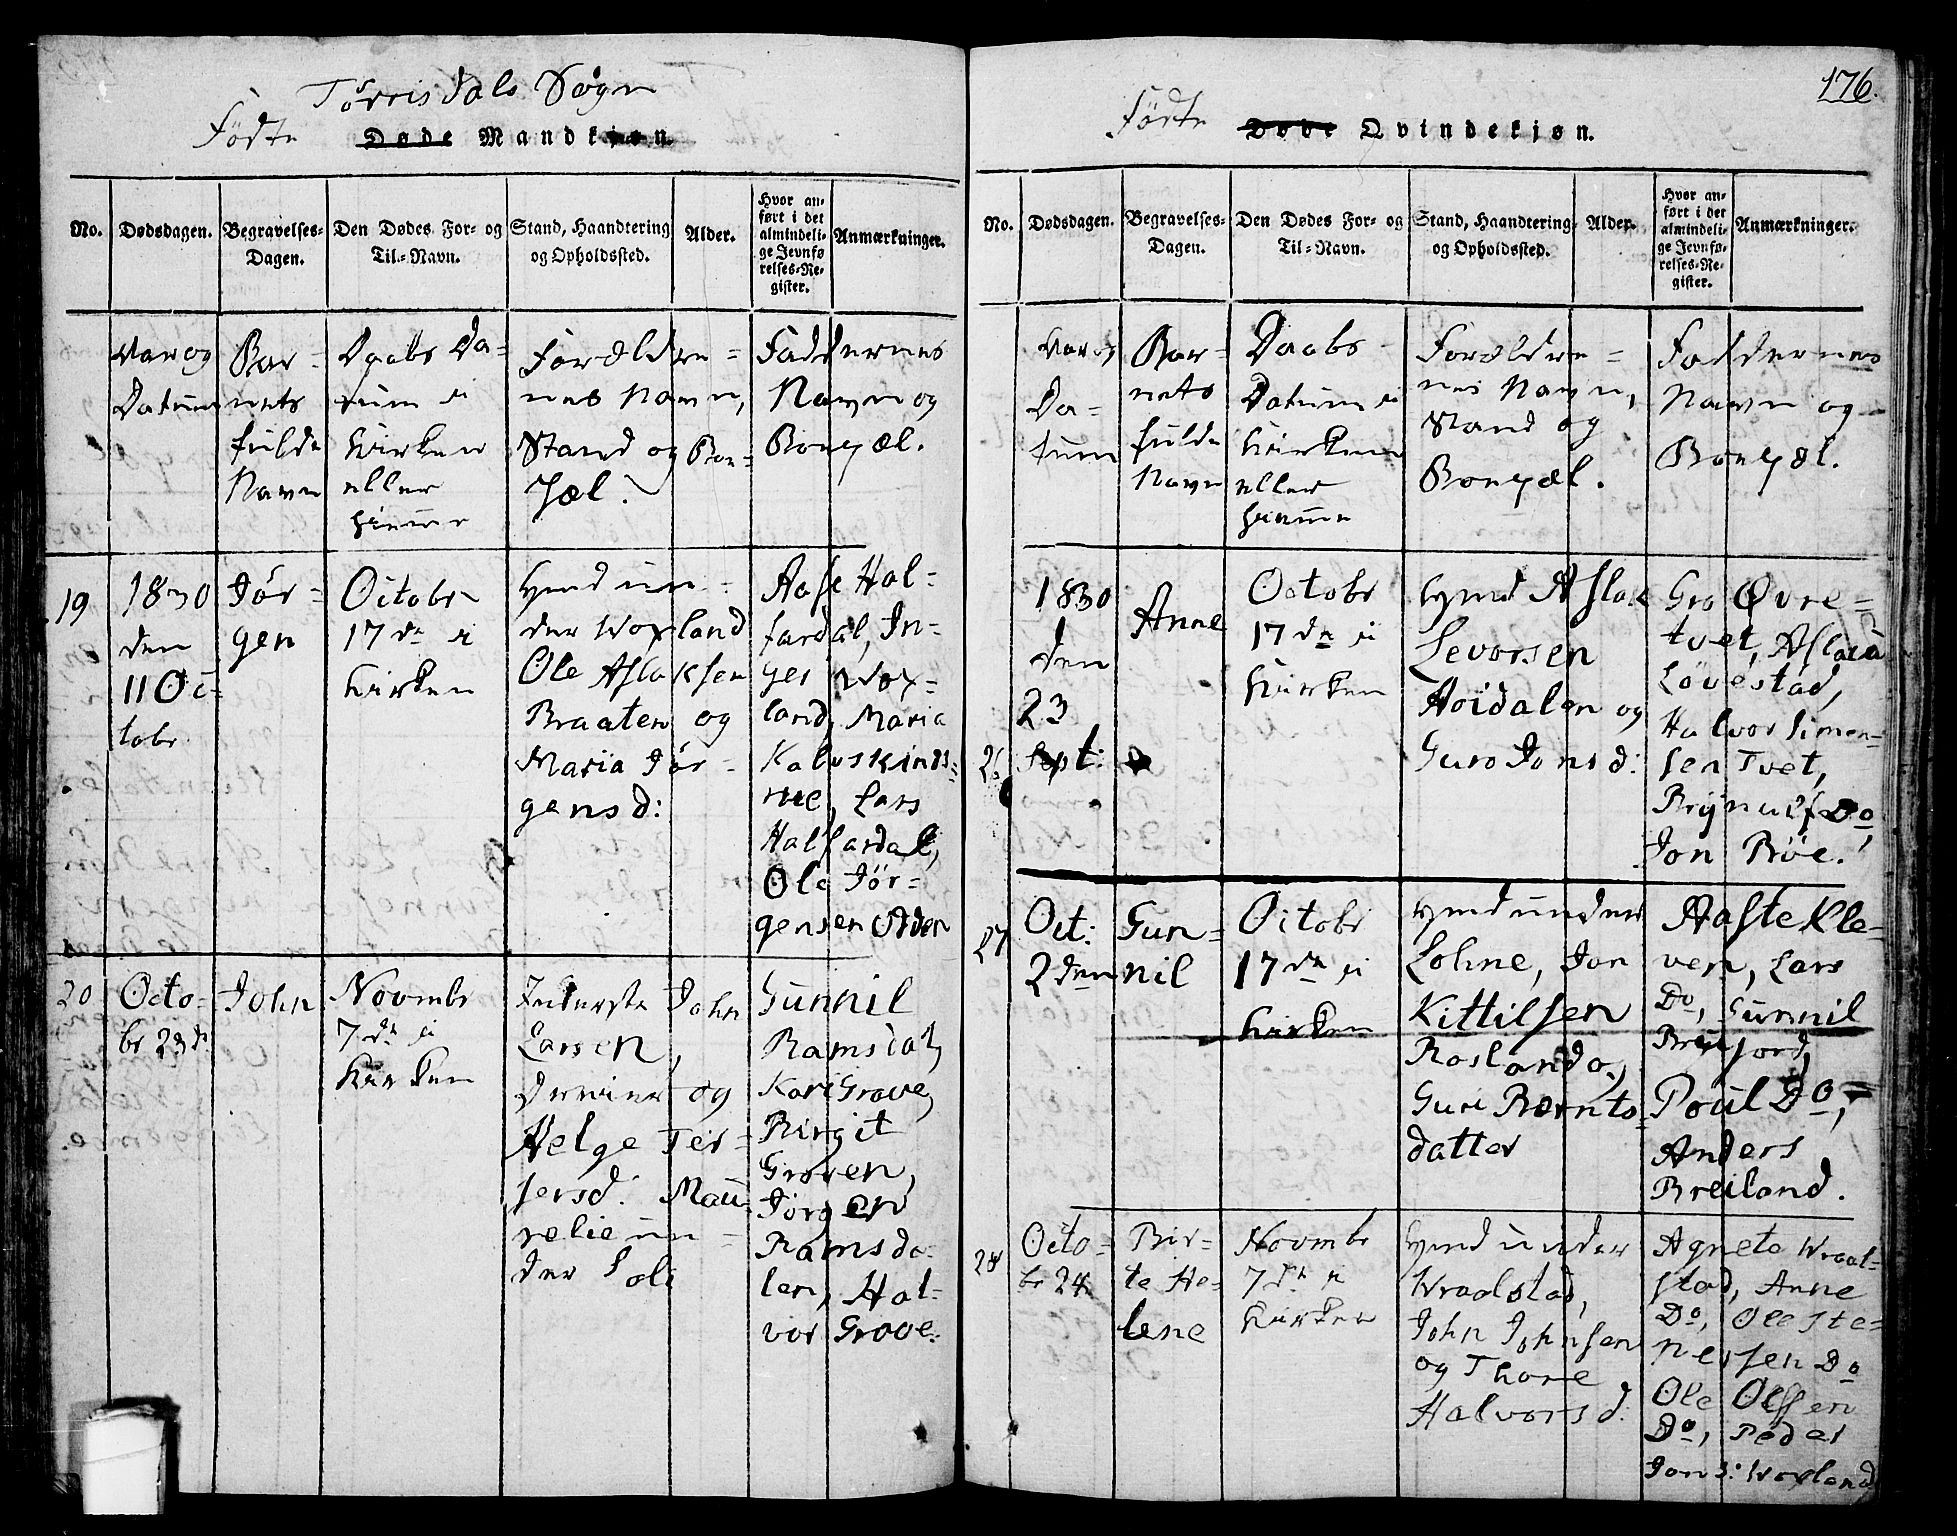 Törrisdals Sogn
Fødte Døde Mandkjøn.
No.
Dødsdagen.
Begravelses-
Dagen.
Den Dødes For- og
Til-Navn.
Stand, Haandtering
og Opholdssted.
Alder.
Hvor an-
ført i det
almindeli-
ge Jevnfø
relses-Re-
gister.
Anmærkninger.
Aar og
Datum
Bar-
nets
fulde
Navn
Daabs Da-
tum i
Kirken
eller
Hiemme
Forældre-
nes Navn,
Stand og Bo-
pæl.
Faddernes
Navn og
Bopæl.
19
1830
den
11 Oc-
tobr
Jör-
gen
Octobr
17de i
Kirken
Hmd un-
der Woxland
Ole Aslaksen
Braaten og
Maria Jör-
gensd:
Aase Hal-
fardal, In-
ger Wox-
land, Maria
Kalvskinds-
rue, Lars
Halfardal,
Ole Jör-
gensen Odden
20
Octo-
br 23d:
John
Novmbr
7de i
Kirken
Inderste John
Larsen,
og
Helge Ter-
jersd: Mau-
relie un-
der Soli
Gunnil
Ramsdal,
Kari Grave,
Birgit
Graven,
Jörgen
Ramsda-
len, Hal-
vor Grave.
176.
Fødte Døde Qvindekjøn.
No.
Dødsdagen.
Begravelses-
Dagen.
Den Dødes For- og
Til-Navn.
Stand, Haandtering,
og Opholdssted.
Alder.
Hvor an-
ført i det
almindeli-
ge Jevnfø-
relses-Re-
gister.
Anmærkninger.
Aar og
Da-
tum
Bar-
nets
fulde
Navn
Daabs-
Datum i
Kirken
eller
Hiemme
Forældre-
nes Navn,
Stand og
Bopæl.
Faddernes
Navn og
Bopæl.
26
1830
den
23
Sept:
Anne
Octobr
17de i
Kirken
Hmd Aslak
Levorsen
Höidalen og
Guro Jonsd:
Gro Övre-
tvet, Aslaug
Lövestad,
Halvor Simen-
sen Tvet,
Brynulf Do,
Jon Bröe.
27
Oct:
2den
Gun-
nil
Octobr
17de i
Kirken
Hmd under
Lohne, Jon
Kittilsen
Rosland og
Guri Bærnts
datter
Aaste Kle-
ven, Lars
Do, Gunnil
Poul Do,
Anders
Breiland.
28
Octo-
br 24
Bir-
te He-
lene
Novmbr
7de i
Kirken
Hmd under
Wraalstad,
John Johnsen
og Thore
Halvorsd:
Agnete Wraal-
stad, Anne
Do, Ole Ste-
nersen Do
Ole Olssen
Do, Peder
Jons: Woxland